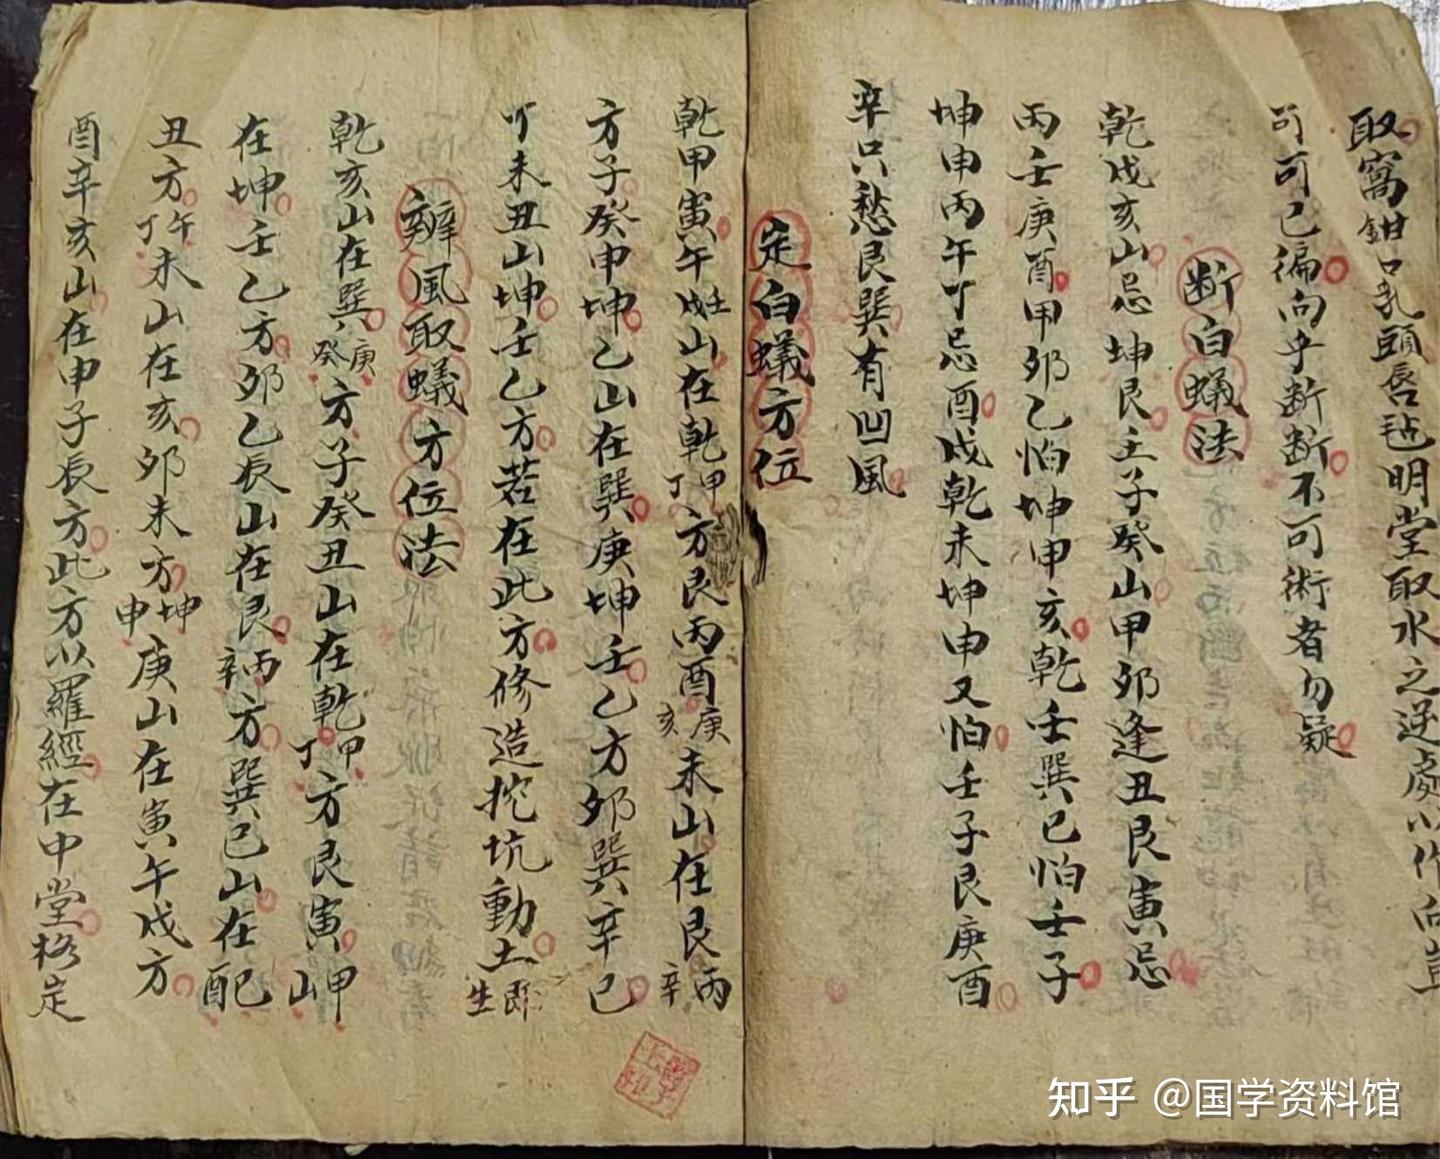 取窩鉗口乳頭唇毡明堂取水之逆處以作向豈
可可已徧向乎断断不可術者勿疑
断白蟻法
乾戌亥山忌坤艮壬子癸山甲卯逢丑艮寅忌
丙壬庚酉甲卯乙怕坤申亥乾壬巽巳怕壬子
坤申丙午丁忌酉戌乾未坤申又怕壬子艮庚酉
辛只愁艮巽有凹風
定白蟻方位
乾甲寅午戌壬山在乾甲丁方艮丙酉庚亥未山在艮丙辛
方子癸申坤乙山在巽庚坤壬乙方卯巽辛巳
丁未丑山坤壬乙方若在此方修造挖坑動土即生
辦風取蟻方位法
乾亥山在巽庚癸方子癸丑山在乾甲丁方艮寅甲山
在坤壬乙方卯乙辰山在艮丙辛方巽巳山在酉巳
丑方午丁未山在亥卯未方坤申庚山在寅午戌方
酉辛亥山在申子辰方此方以羅經在中堂格定
知乎 @国学资料馆